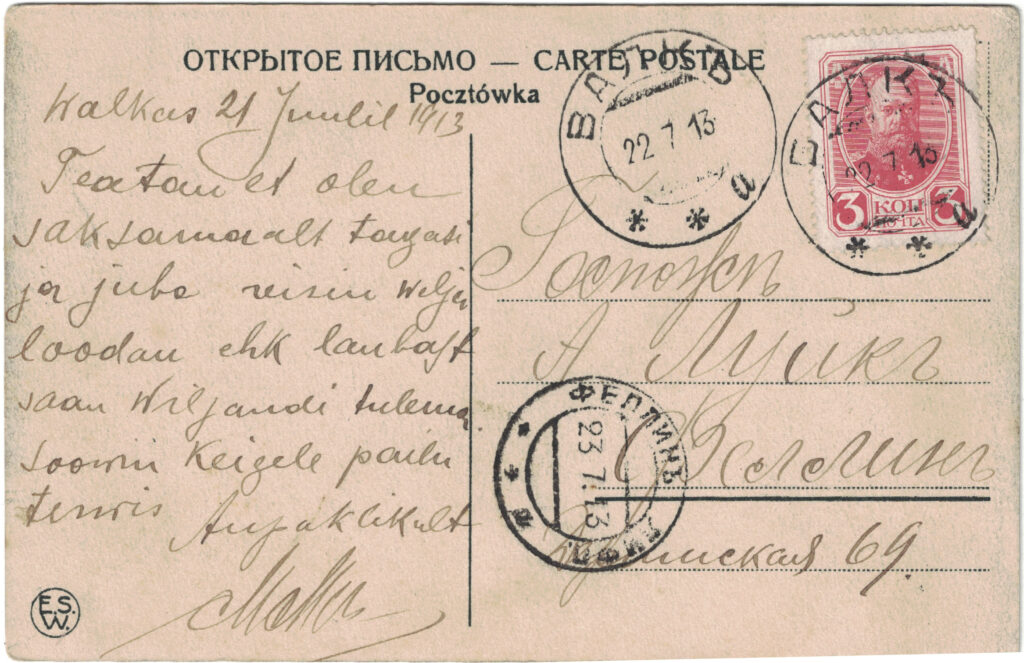 ОТКРЫТОЕ ПИСЬМО — CARTE POSTALE
Pocztówka
Walkas 21 Juulil 1913
Teatan et olen
saksamaalt tagasi
ja juba reisin wilja
loodan ehk laubast
saan Wiljandi tulema
soowin Keigele palu
terwis
ВАЛКЪ
22 7 13
a
ВАЛКЪ
22 7 13
a
3 КОП 3
ПОЧТА
Госпожѣ
А Луйкъ
Феллинъ
69.
ФЕЛЛИНЪ
23 7.13
E.S.
W.